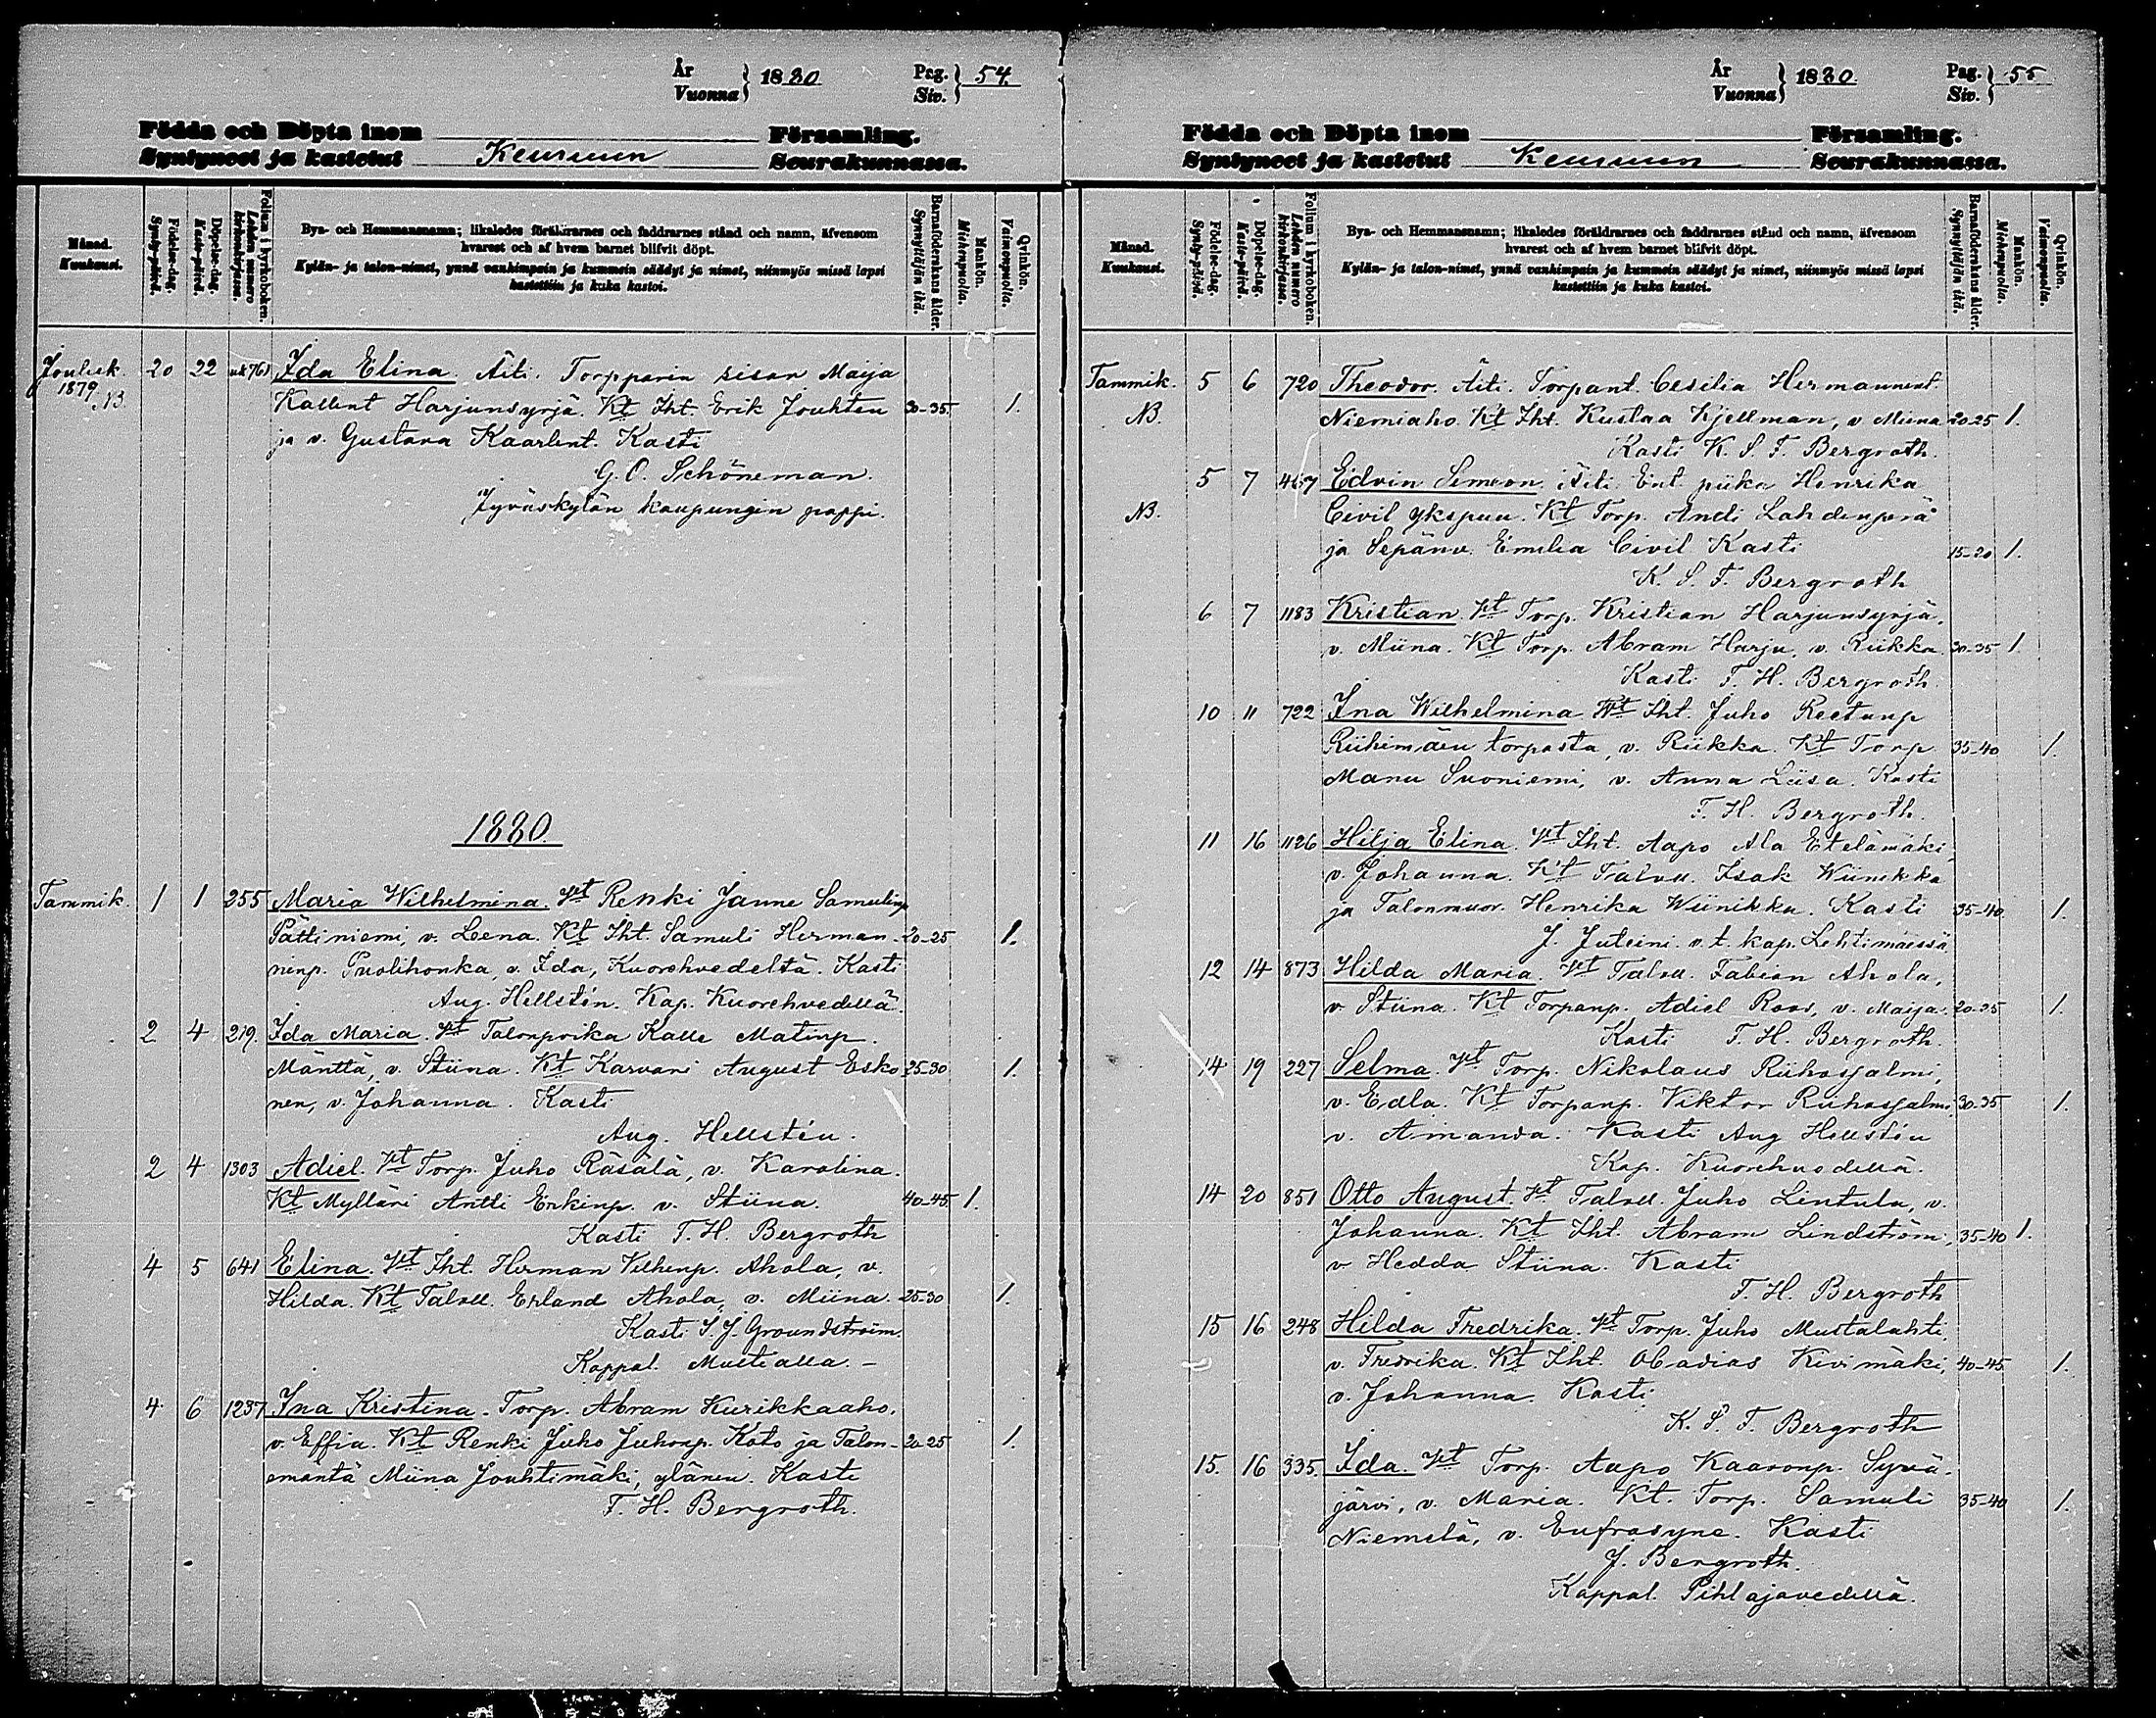 År
Vuonna } 1880 Pag.
Siv. } 54.
Födda och Döpta inom Församling.
Syntyneet ja kastetut Keuruun Seurakunnassa.
Månad.
Kuukausi.
Födelse-dag.
Synty-päivä.
Döpelse-dag.
Kaste-päivä.
Folium i kyrkoboken.
Lehden numero kirkonkirjassa.
Bya- och Hemmansnamn; likaledes föräldrarnes och faddrarnes stånd och namn, äfvensom
hvarest och af hvem barnet blifvit döpt.
Kylän- ja talon-nimet, ynnä vanhimpain ja kummein säädyt ja nimet, niinmyös missä lapsi
kastettiin ja kuka kastoi.
Barnaföderskans ålder.
Synnyttäjän ikä.
Mankön.
Miehenpuolia.
Qvinkön.
Vaimonpuolia.
Jouluk. 20 22 761 Ida Elina. Äiti. Torpparin sisar Maija
1879 NB. Kallent Harjunsyrjä. Kt Iht. Erik Jouhten 30-35. 1.
ja v. Gustava Kaarlent. Kasti
G. O. Schöneman.
Jyväskylän kaupungin pappi.
1880.
Tammik. 1 1 255 Maria Wilhelmina. Vt Renki Janne Samulinp
Pättiniemi, v. Leena. Kt Iht. Samuli Herman- 20-25 1.
ninp. Puolihonka, v. Ida, Kuorehvedeltä. Kasti
Aug. Hellstén. Kap. Kuorehvedellä.
2 4 219. Ida Maria. Vt Talonpoika Kalle Matinp.
Mänttä, v. Stiina. Kt Karvari August Esko 25-30 1.
nen, v. Johanna. Kasti
Aug. Hellstén.
2 4 1303 Adiel. Vt Torp. Juho Räsälä, v. Karolina.
Kt Mylläri Antti Erkinp. v. Stiina. 40-45. 1.
Kasti F. H. Bergroth
4 5 641 Elina. Vt Iht. Herman Vilhenp. Ahola, v.
Hilda. Kt Taloll. Erland Ahola, v. Miina. 25-30 1.
Kasti S. J. Groundström.
Kappal. Multialla. -
4 6 1237 Ina Kristina. Torp. Abram Kurikkaaho.
v. Effia. Kt Renki Juho Juhonp. Koto ja Talon- 20-25 1.
emäntä Miina Jouhtimäki, ylänen. Kasti
F. H. Bergroth.
År
Vuonna } 1880. Pag.
Siv. } 55
Födda och Döpta inom Församling.
Syntyneet ja kastetut Keuruun Seurakunnassa.
Månad.
Kuukausi.
Födelse-dag.
Synty-päivä.
Döpelse-dag.
Kaste-päivä.
Folium i kyrkoboken.
Lehden numero kirkonkirjassa.
Bya- och Hemmansnamn; likaledes föräldrarnes och faddrarnes stånd och namn, äfvensom
hvarest och af hvem barnet blifvit döpt.
Kylän- ja talon-nimet, ynnä vanhimpain ja kummein säädyt ja nimet, niinmyös missä lapsi
kastettiin ja kuka kastoi.
Barnaföderskans ålder.
Synnyttäjän ikä.
Mankön.
Miehenpuolia.
Qvinkön.
Vaimonpuolia.
Tammik. 5 6 720 Theodor. Äiti. Torpant. Cesilia Hermannent.
NB. Niemiaho. Kt Iht. Kustaa Kjellman, v. Miina 20-25 1.
Kasti K. S. F. Bergroth.
5 7 Edvin Simeon. Äiti. Ent. piika Henrika
NB. Civil ykspuu. Kt Torp. Andi Lahdenperä
ja Sepänv. Emilia Civil Kasti 15-20 1.
K. S. F. Bergroth
6 7 1183 Kristian. Vt Torp. Kristian Harjunsyrjä,
v. Miina. Kt Torp. Abram Harju, v. Riikka. 30-35 1.
Kasti F. H. Bergroth.
10 11 722 Ina Wilhelmina. Vt Iht. Juho Reetunp
Riihimäen torpasta, v. Riikka. Kt Torp. 35-40 1.
Manu Suoniemi, v. Anna Liisa. Kasti
F. H. Bergroth.
11 16 1126 Hilja Elina. Vt Iht. Aapo Ala Etelämäki,
v. Johanna. Kt Taloll. Isak Wiinikka
ja Talonmuor. Henrika Wiinikka. Kasti 35-40 1.
J. Juteini. v. t. kap. Lehtimäessä.
12 14 873 Hilda Maria. Vt Taloll. Fabian Ahola,
v. Stiina. Kt Torpanp. Adiel Roos, v. Maija. 20-35 1.
Kasti F. H. Bergroth.
14 19 227 Selma. Vt Torp. Nikolaus Riihosjalmi,
v. Edla. Kt Torpanp. Viktor Riihosjalmi, 30-35 1.
v. Amanda. Kasti Aug Hellstén
Kap. Kuorehvedellä.
14 20 851 Otto August. Vt Taloll. Juho Lintula, v.
Johanna. Kt Iht. Abram Lindström, 35-40 1.
v Hedda Stiina. Kasti
F. H. Bergroth
15 16 248 Hilda Fredrika. Vt Torp. Juho Mustalahti,
v. Fredrika. Kt Iht. Obadias Kivimäki, 40-45 1.
v. Johanna. Kasti
K. S. F. Bergroth
15. 16 335. Ida. Vt Torp. Aapo Kaaronp. Syvä-
järvi, v. Maria. Kt. Torp. Samuli 35-40 1.
Niemelä, v. Eufrosyne. Kasti
J. Bergroth.
Kappal. Pihlajavedellä.